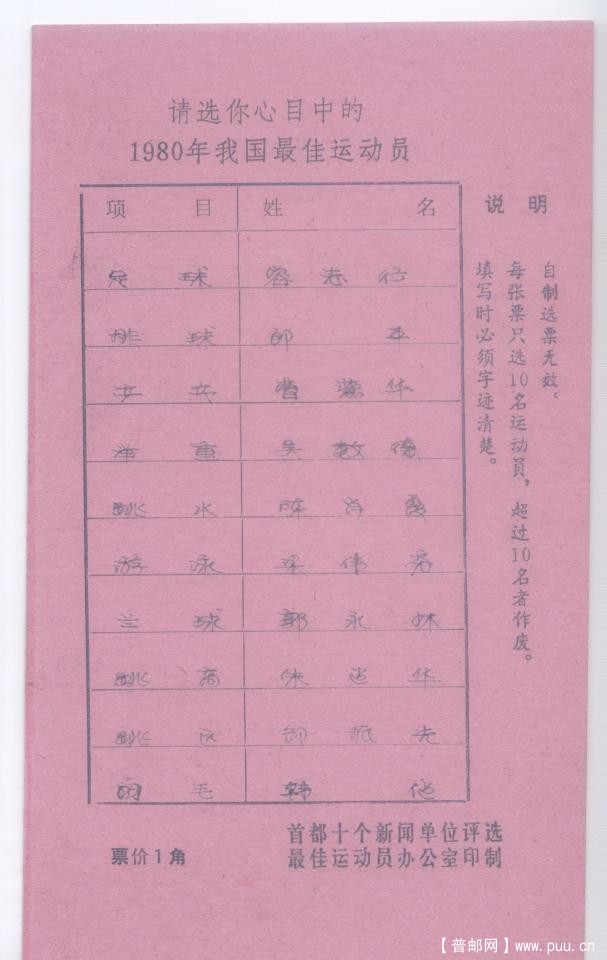 请选你心目中的
1980年我国最佳运动员
项目 姓名
足球 容志行
排球 郎平
乒乓 曹燕华
举重 吴数德
跳水 陈肖霞
游泳 梁伟芬
兰球 郭永林
跳高 朱建华
跳远 邹振先
羽毛 韩健
说明
自制选票无效。
每张票只选10名运动员，超过10名者作废。
填写时必须字迹清楚。
票价1角
首都十个新闻单位评选
最佳运动员办公室印制
【普邮网】www.puu.cn